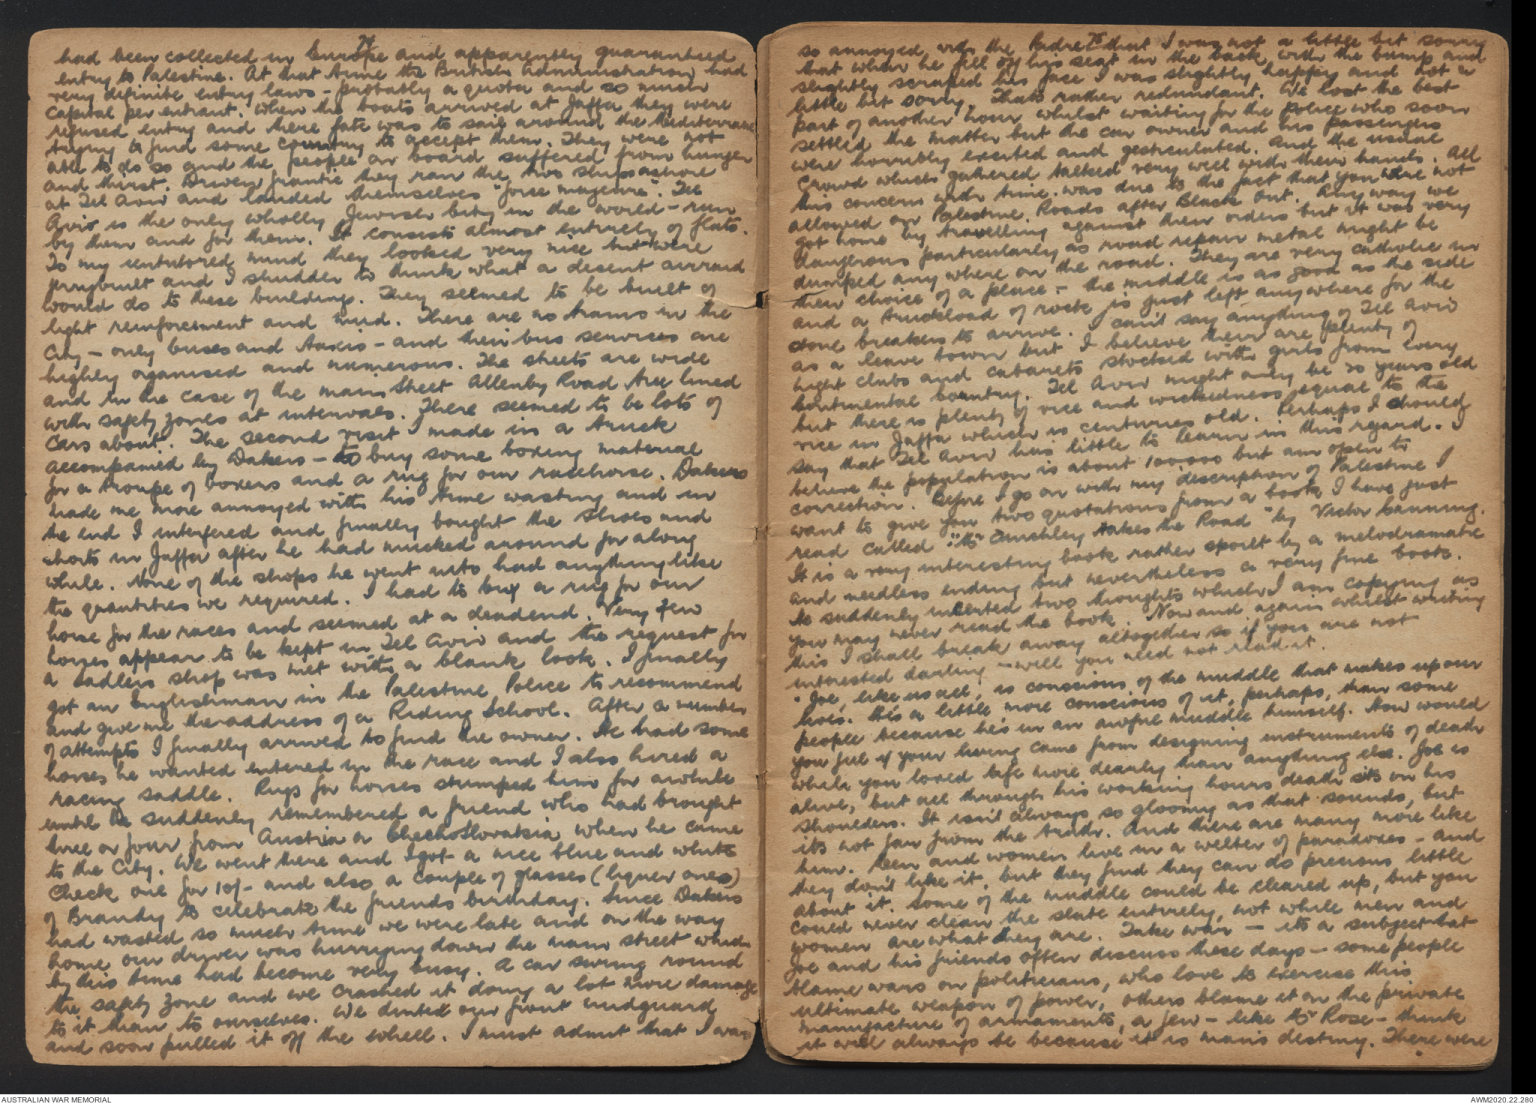 74
had been collected in Europe and apparently guaranteed
entry to Palestine. At that time the British Administration had
very definite entry laws - probably a quota and so much
capital per entrant. When the boats arrived at Jaffa they were
refused entry and there fate was to sail around the Mediterranean
trying to find some country to accept them. They were not
able to do so and the people on board suffered from hunger
and thirst. Driven frantic they ran the two ships ashore
at Tel Aviv and landed themselves "force majeure". Tel
Aviv is the only wholly Jewish city in the world - run
by them and for them. It consists almost entirely of flats.
To my untutored mind they looked very nice but were
jerrybuilt and I shudder to think what a decent airraid
would do to these buildings. They seemed to be built of
light reinforcement and mud. There are no trams in the
city - only buses and taxis - and their bus services are
highly organised and numerous. The streets are wide
and in the case of the main street Allenby Road tree lined
with safety zones at intervals. There seemed to be lots of
cars about. The second visit I made in a truck
accompanied by Dakers - to buy some boxing material
for a troupe of boxers and a rug for our racehorse. Dakers
made me more annoyed with his time wasting and in
the end I interfered and finally bought the shoes and
shorts in Jaffa after he had mucked around for along
while. None of the shops he went into had anything like
the quantities we required. I had to buy a rug for our
horse for the races and seemed at a deadend. Very few
horses appear to be kept in Tel Aviv and the request for
a sadlers shop was met with a blank look. I finally
got an Englishman in the Palestine Police to recommend
and give me the address of a Riding School. After a number
of attempts I finally arrived to find the owner. He had some
horses he wanted entered in the race and I also hired a
racing saddle. Rugs for horses stumped him for awhile
until he suddenly remembered a friend who had brought
three or four from Austria or Chechoslovakia when he came
to the City. We went there and I got a nice blue and white
check one for 10/- and also a couple of glasses (liquer ones)
of Brandy to celebrate the friends birthday. Since Dakers
had wasted so much time we were late and on the way
home our driver was hurrying down the main street which
by this time had become very busy. A car swung round
the safety zone and we crashed it doing a lot more damage
to it than to ourselves. We dinted our front mudguard
and soon pulled it off the wheel. I must admit that I was
75
so annoyed with the Padre that I was not a little bit sorry
that when he fell off his seat in the back with the bump and
slightly scraped his face I was slightly happy and not a
little bit sorry. Thats rather redundant. We lost the best
part of another hour whilst waiting for the police who soon
settled the matter but the car owner and his passengers
were horribly excited and gesticulated. And the usual
crowd which gathered talked very well with their hands. All
this concern with time was due to the fact that you were not
allowed on Palestine Roads after Black out. Any way we
got home by travelling against their orders but it was very
dangerous particularly as road repair metal might be
dumped any where on the road. They are very catholic in
their choice of a place - the middle is as good as the side
and a truckload of rock is just left anywhere for the
stone breakers to arrive. I can't say anything of Tel Aviv
as a leave town but I believe there are plenty of
night clubs and cabarets stocked with girls from every
continental country. Tel Aviv might only be 20 years old
but there is plenty of vice and wickedness equal to the
vice in Jaffa which is centuries old. Perhaps I should
say that Tel Aviv has little to learn in this regard. I
believe the population is about 100,000 but am open to
correction. Before I go on with my description of Palestine I
want to give you two quotations from a book I have just
read called "Mr Finchley takes the Road" by Victor Canning.
It is a very interesting book rather spoilt by a melodramatic
and needless ending but nevertheless a very fine book.
He suddenly inserted two thoughts which I am copying as
you may never read the book. Now and again whilst writing
this I shall break away altogether so if you are not
interested darling - well you need not read it.
"Joe, like us all, is conscious of the muddle that makes up our
lives. He's a little more conscious of it, perhaps, than some
people because he's in an awful muddle himself. How would
you feel if your living came from designing instruments of death
while you loved life more dearly than anything else. Joe is
alive, but all through his working hours death sits on his
shoulders. It isn't always so gloomy as that sounds, but
it's not far from the truth. And there are many more like
him. Men and women live in a welter of paradoxes - and
they don't like it, but they find they can do precious little
about it. Some of the muddle could be cleared up, but you
could never clean the slate entirely, not while men and
women are what they are. Take war - it's a subject that
Joe and his friends often discuss these days - some people
blame wars on politicians, who love to exercise this
ultimate weapon of power, others blame it on the private
manufacture of armaments, a few - like Mr Rose - think
it will always be because it is man's destiny. There were
AUSTRALIAN WAR MEMORIAL
AWM2020.22.280